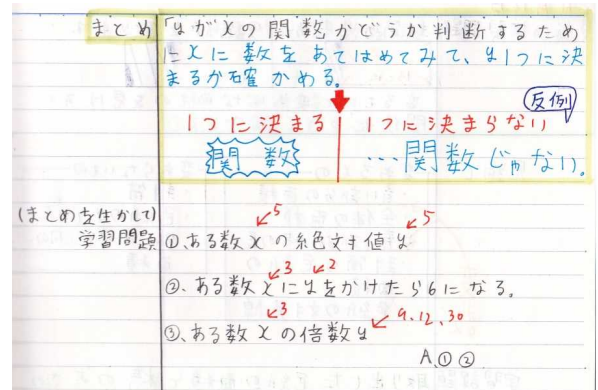 まとめ 「yがxの関数かどうか判断するため
にxに数をあてはめてみて、y1つに決
まるか確かめる。
反例
1つに決まる 1つに決まらない
関数 …関数じゃない。
(まとめを生かして)
学習問題
5 5
①、ある数xの絶対値y
3 2
②、ある数xにyをかけたら6になる。
3 9、12、30
③、ある数xの倍数y
A、①②